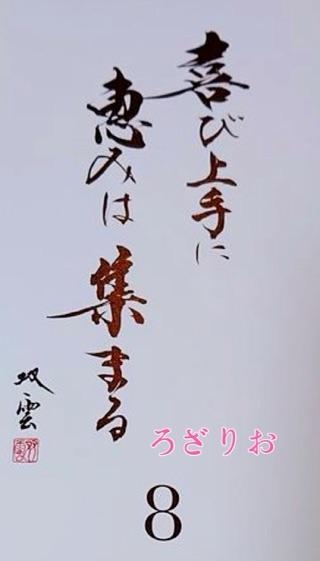 喜び上手に
恵みは集まる
双雲
ろざりお
8